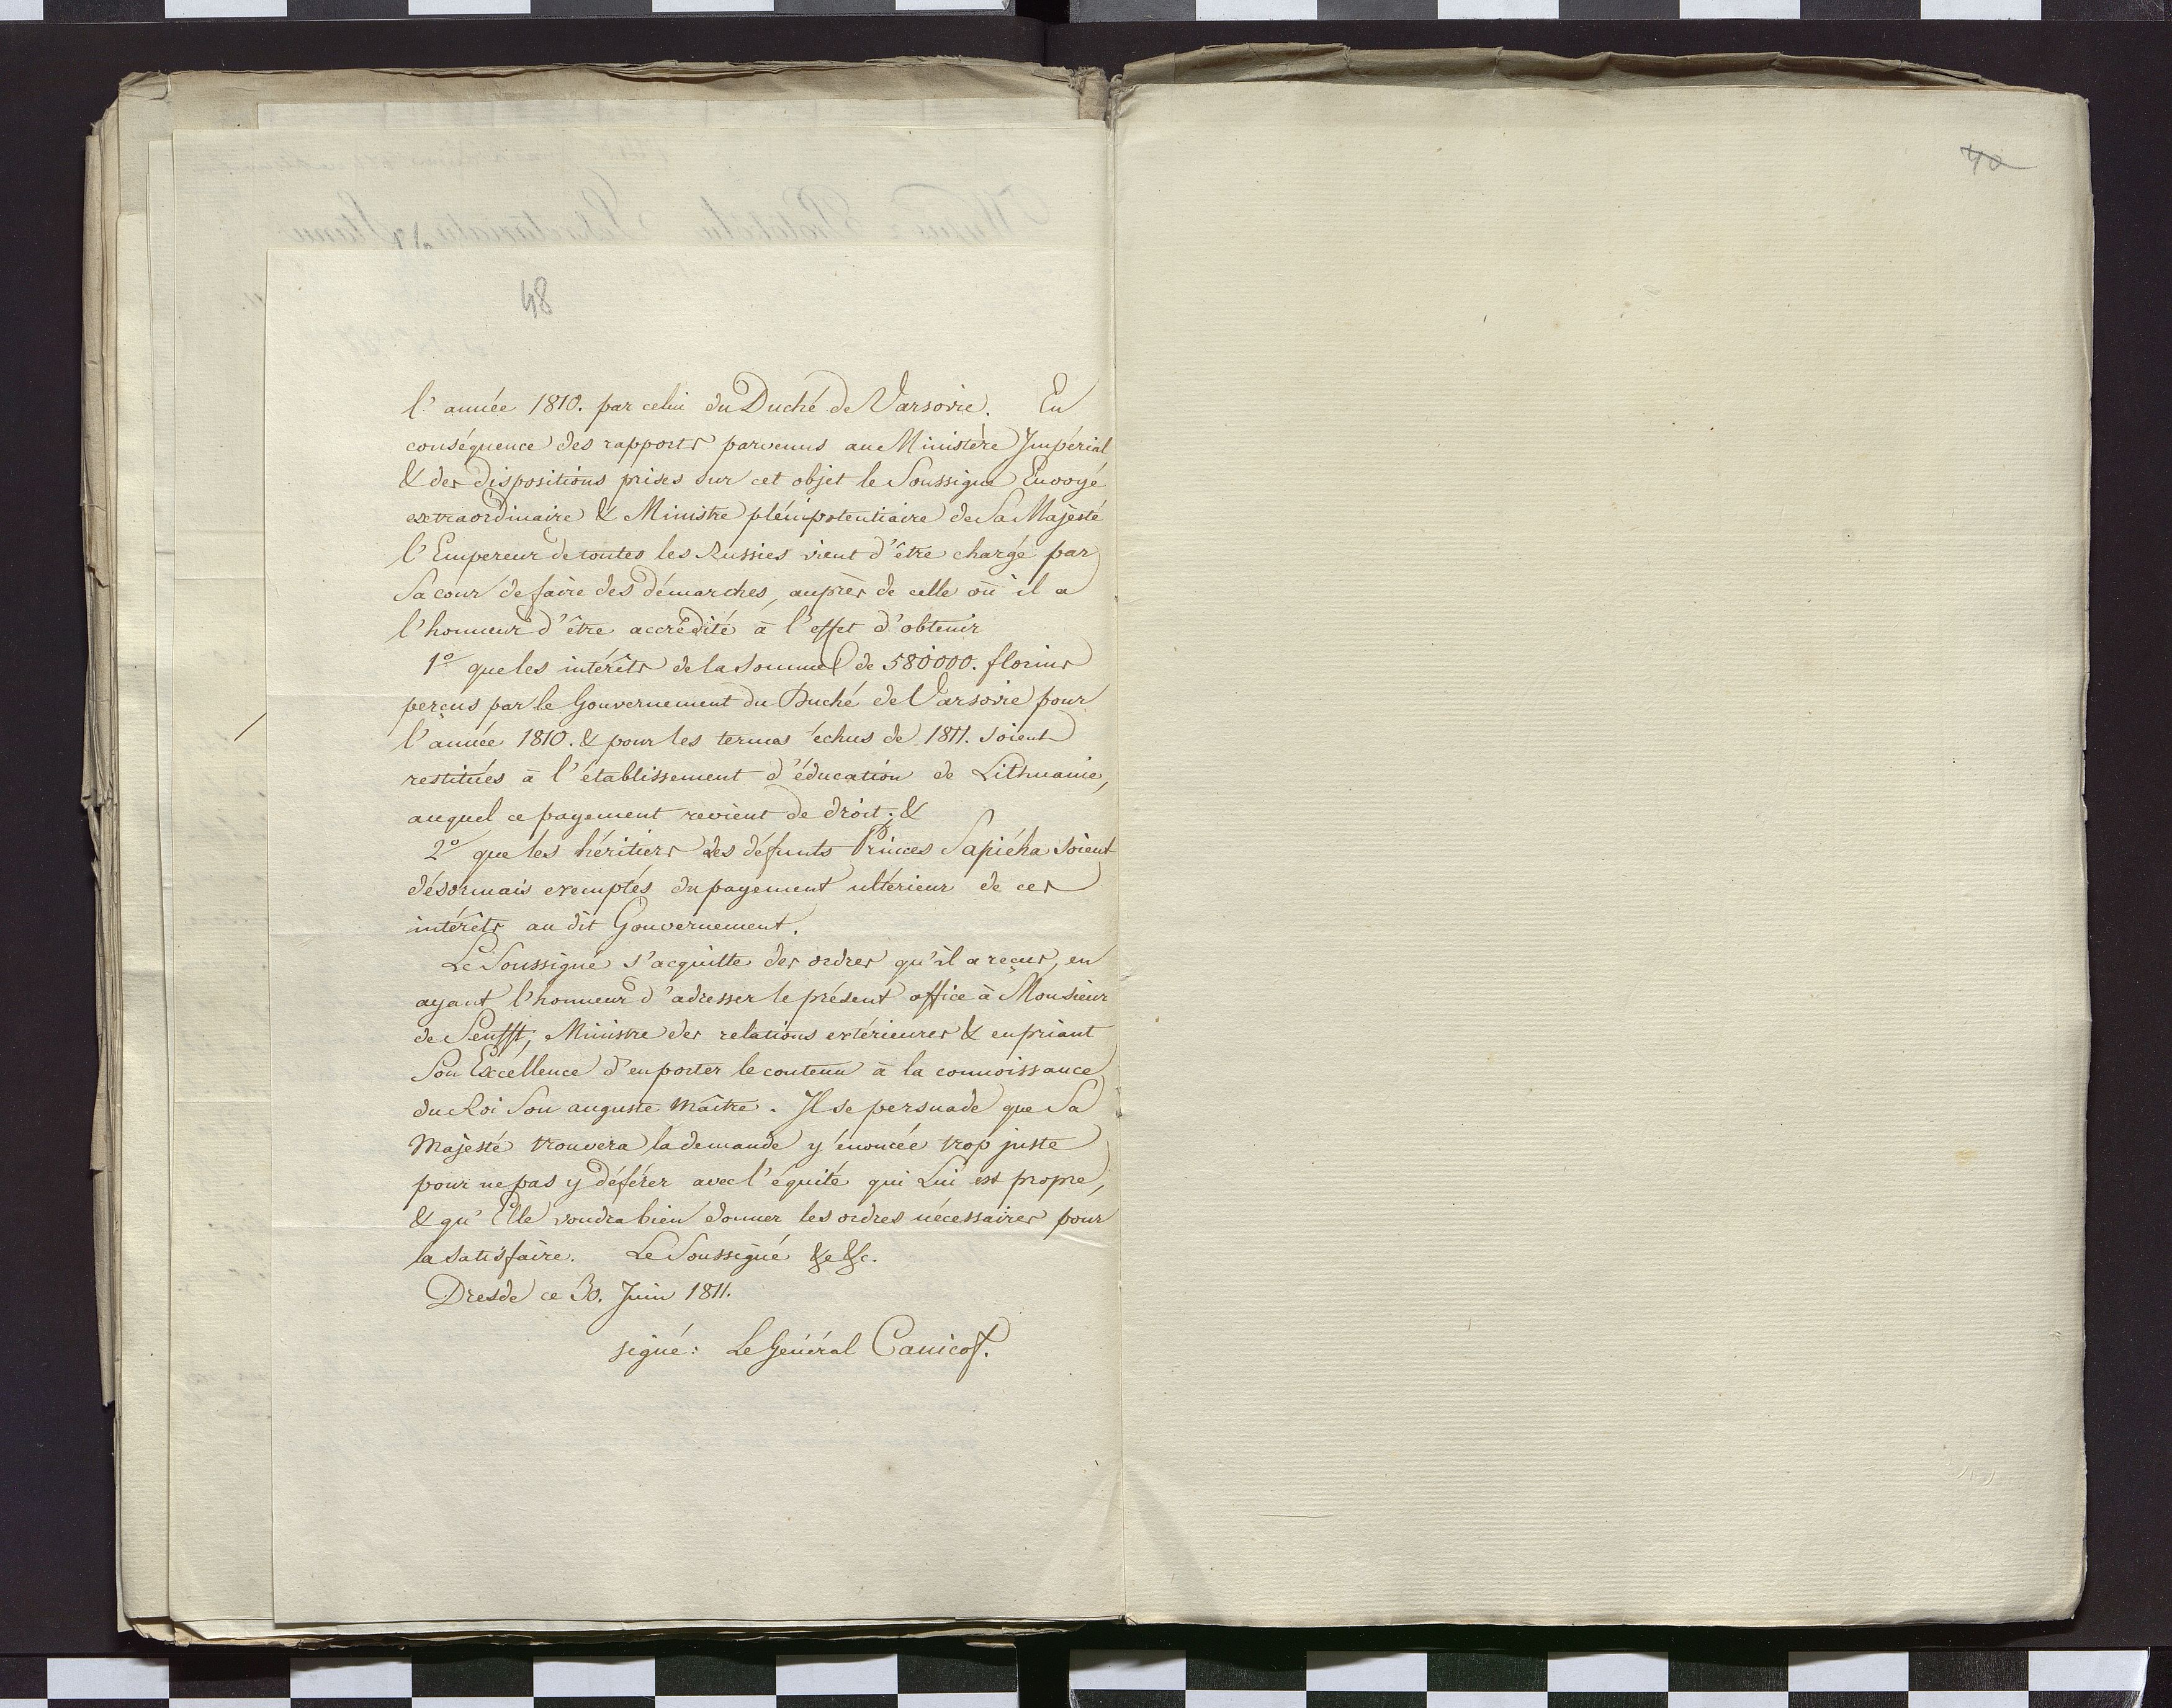 48
l'année 1810. par celui du Duché de Varsovie. En
conséquence des rapports parvenus au Ministère Impérial
& des dispositions prises sur cet objet le Soussigné Envoyé
extraordinaire & Ministre plénipotentiaire de Sa Majesté
l'Empereur de toutes les Russies vient d'être chargé par
Sa cour de faire des démarches, auprès de celle où il a
l'honneur d'être accrédité à l'effet d'obtenir
1o que les intérêts de la somme de 580000. florins
perçus par le Gouvernement du Duché de Varsovie pour
l'année 1810. & pour les termes échus de 1811. soient
restitués à l'établissement d'éducation de Lithuanie,
auquel ce payement revient de droit; &
2o que les héritiers des défunts Princes Sapiéha soient
désormais exemptés du payement ultérieur de ces
intérêts au dit Gouvernement.
Le Soussigné s'acquitte des ordres qu'il a reçus, en
ayant l'honneur d'adresser le présent office à Monsieur
de Senfft, Ministre des relations extérieures & en priant
Son Excellence d'en porter le contenu à la connoissance
du Roi Son auguste Maître. Il se persuade que Sa
Majesté trouvera la demande y énoncée trop juste
pour ne pas y déférer avec l'équité qui Lui est propre,
& qu'Elle voudra bien donner les ordres nécessaires pour
la satisfaire. Le Soussigné &c &c.
Dresde ce 30. Juin 1811.
signé: Le Général Canicof.
40